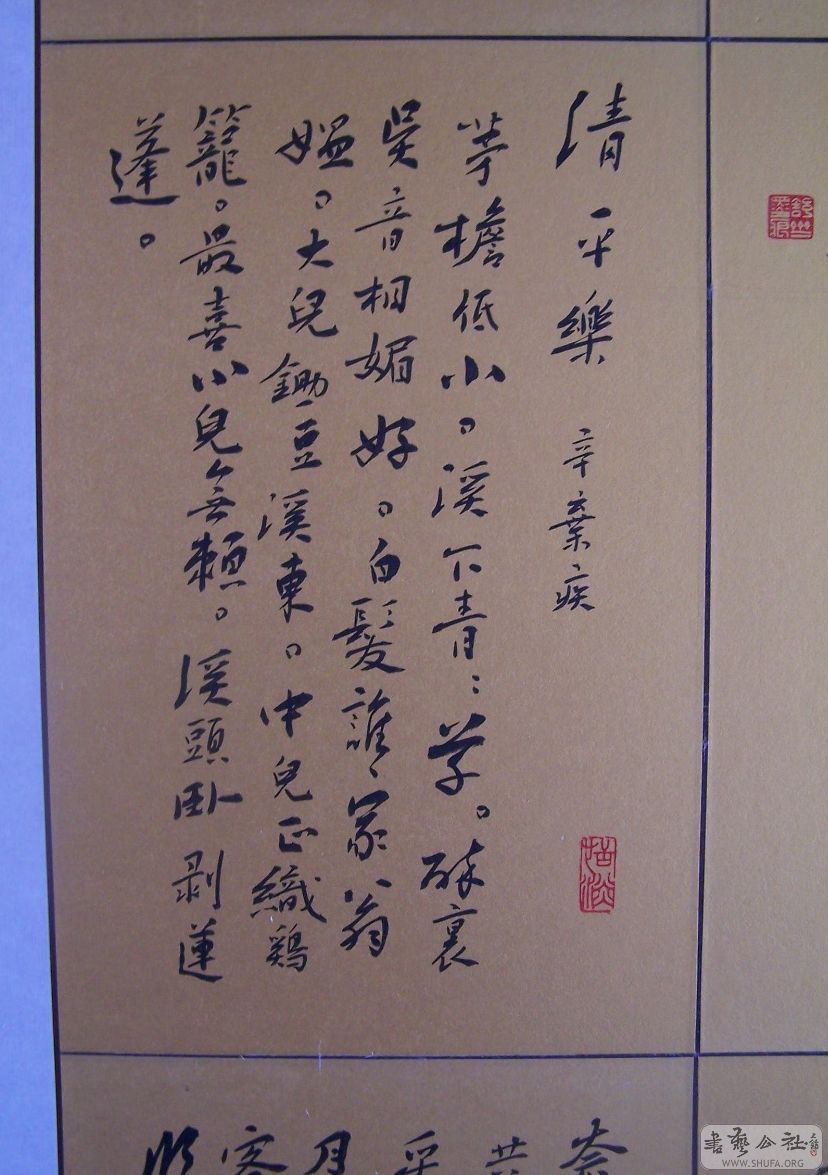 清平樂 辛棄疾
茅檐低小。溪下青〻草。醉裏
吳音相媚好。白髮誰家翁
媼。大兒鋤豆溪東。中兒正織鶏
籠。最喜小兒無賴。溪頭卧剥蓮
蓬。
書藝公社
WWW.SHUFA.ORG